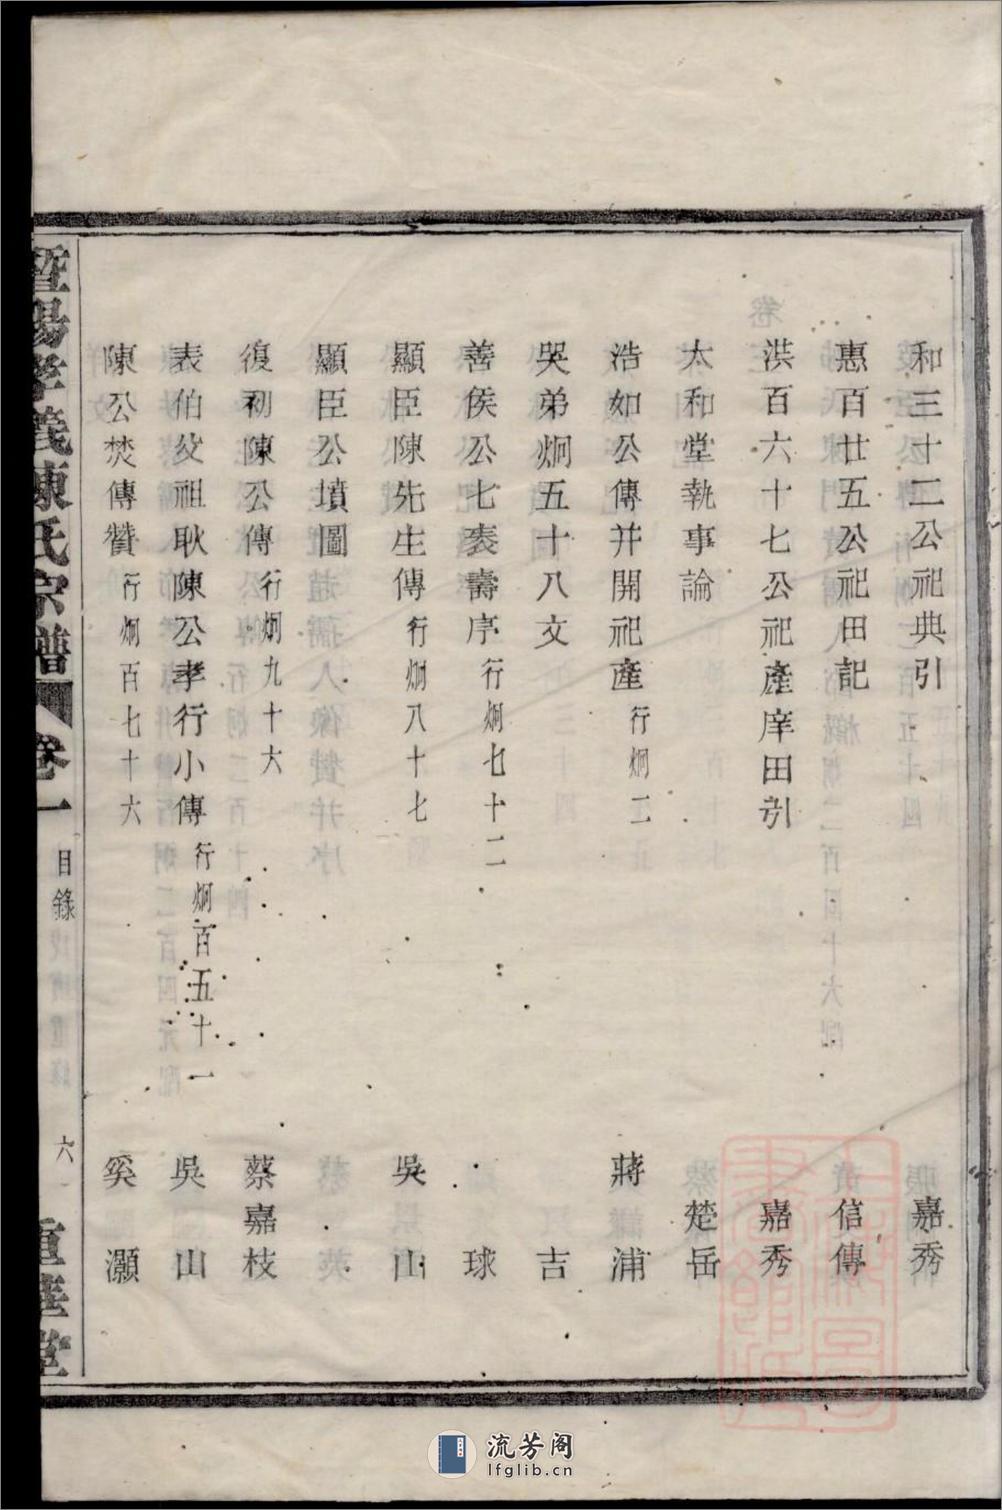 和三十二公祀典引 嘉秀
惠百廿五公祀田記 信傳
洪百六十七公祀產庠田引 嘉秀
太和堂執事論 楚岳
浩如公傳并開祀產 行炯二 蔣謙浦
哭弟炯五十八文 吉
善侯公七袠壽序 行炯七十二 球
顯臣陳先生傳 行炯八十七 吳山
顯臣公墳圖
復初陳公傳 行炯九十六 蔡嘉枝
表伯父祖耿陳公孝行小傳 行炯百五十一 吳山
陳公焚傳贊 行炯百七十六 奚灝
暨陽孝義陳氏宗譜 卷一 目錄 六 重華堂
流芳阁
lfglib.cn